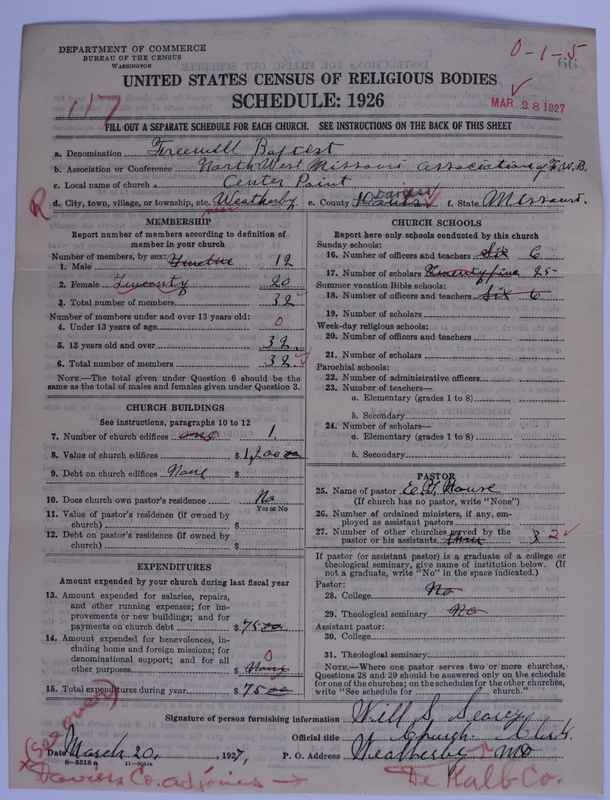 DEPARTMENT OF COMMERCE
BUREAU OF THE CENSUS
WASHINGTON
0-1-5
117
UNITED STATES CENSUS OF RELIGIOUS BODIES
SCHEDULE: 1926
MAR 28 1927
FILL OUT A SEPARATE SCHEDULE FOR EACH CHURCH. SEE INSTRUCTIONS ON THE BACK OF THIS SHEET
a. Denomination Freewill Baptist
b. Association or Conference North West Missouri Association of F.W.B.
c. Local name of church Center Point
R d. City, town, village, or township, etc. near Weatherby e. County Daviess f. State Missouri.
MEMBERSHIP
Report number of members according to definition of
member in your church
Number of members, by sex:
1. Male 12
2. Female Twenty 20
3. Total number of members 32
Number of members under and over 13 years old:
4. Under 13 years of age 0
5. 13 years old and over 32
6. Total number of members 32
NOTE.—The total given under Question 6 should be the
same as the total of males and females given under Question 3.
CHURCH BUILDINGS
See instructions, paragraphs 10 to 12
7. Number of church edifices one 1
8. Value of church edifices $1,200 00
9. Debt on church edifices None $
10. Does church own pastor's residence No
Yes or No
11. Value of pastor's residence (if owned by
church) $
12. Debt on pastor's residence (if owned by
church) $
EXPENDITURES
Amount expended by your church during last fiscal year
13. Amount expended for salaries, repairs,
and other running expenses; for im-
provements or new buildings; and for
payments on church debt $75 00
14. Amount expended for benevolences, in-
cluding home and foreign missions; for
denominational support; and for all
other purposes 0 $ None
15. Total expenditures during year $75 00
CHURCH SCHOOLS
Report here only schools conducted by this church
Sunday schools:
16. Number of officers and teachers Six 6
17. Number of scholars Twenty five 25
Summer vacation Bible schools:
18. Number of officers and teachers Six 6
19. Number of scholars
Week-day religious schools:
20. Number of officers and teachers
21. Number of scholars
Parochial schools:
22. Number of administrative officers
23. Number of teachers—
a. Elementary (grades 1 to 8)
b. Secondary
24. Number of scholars—
a. Elementary (grades 1 to 8)
b. Secondary
PASTOR
25. Name of pastor House
(If church has no pastor, write "None")
26. Number of ordained ministers, if any, em-
ployed as assistant pastors
27. Number of other churches served by the
pastor or his assistants three 3 2
If pastor (or assistant pastor) is a graduate of a college or
theological seminary, give name of institution below. (If
not a graduate, write "No" in the space indicated.)
Pastor:
28. College No
29. Theological seminary No
Assistant pastor:
30. College
31. Theological seminary
NOTE.—Where one pastor serves two or more churches,
Questions 28 and 29 should be answered only on the schedule
for one of the churches; on the schedules for the other churches,
write "See schedule for church."
Signature of person furnishing information Will S. Searcy
Official title Church Clerk
(See over)
Date March 20, 1927, P. O. Address Weatherby Mo
8—5518a
Daviess Co. adjoins → De Kalb Co.